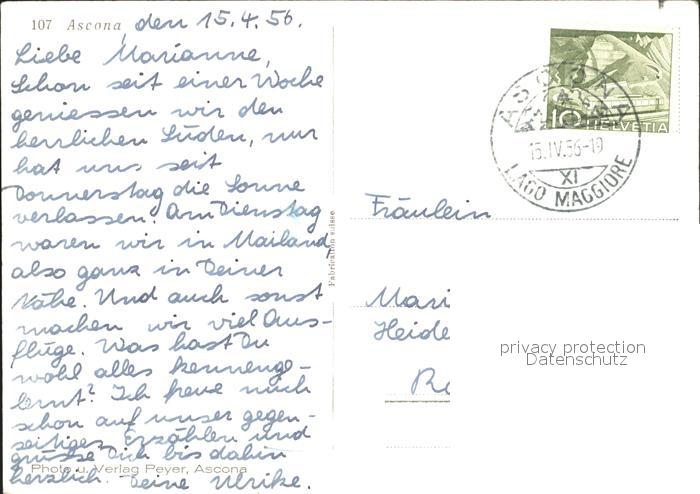 107 Ascona, den 15.4.56.
Liebe Marianne,
Schon seit einer Woche
geniessen wir den
herrlichen Süden, nur
hat uns seit
Donnerstag die Sonne
verlassen. Am Dienstag
waren wir in Mailand,
also ganz in Deiner
Nähe. Und auch sonst
machen wir viel Aus-
flüge. Was hast Du
wohl alles kennenge-
lernt? Ich freue mich
schon auf unser gegen-
seitiges Erzählen und
grüsse Dich bis dahin
Photo u. Verlag Peyer, Ascona
herzlich. Deine Ulrike.
Fabrication suisse
10 HELVETIA
ASCONA
15.IV.56-19
XI
LAGO MAGGIORE
Fräulein
Mari
Heide
privacy protection
Datenschutz